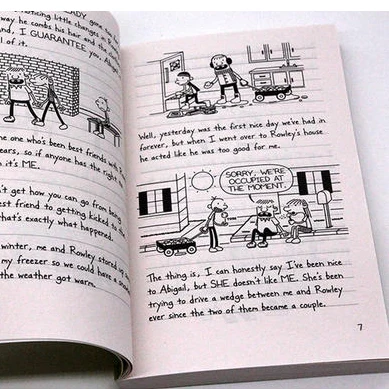 DY gone too
noticing little changes in
way he combs his hair and the clothes
and, I GUARANTEE you, Abigail
l of it.
e one who's been best friends with
ears, so if anyone has the right
n it's ME.
't get how you can go from being
est friend to getting kicked to the
that's exactly what happened.
winter, me and Rowley stored
my freezer so we could have a
the weather got warm.
Well, yesterday was the first nice day we've had in
forever, but when I went over to Rowley's house
he acted like he was too good for me.
SORRY, WE'RE
OCCUPIED AT
THE MOMENT.
The thing is, I can honestly say I've been nice
to Abigail, but SHE doesn't like ME. She's been
trying to drive a wedge between me and Rowley
ever since the two of them became a couple.
7